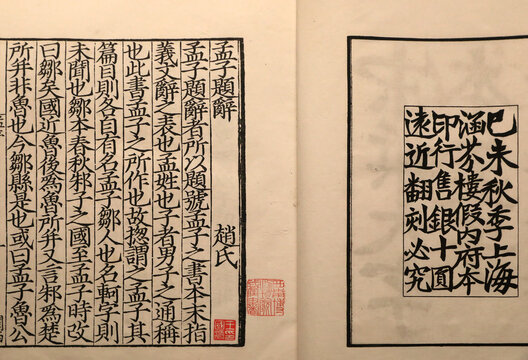 己未秋季上海
涵芬樓假内府本
印行售銀十圓
遠近翻刻必究
孟子題辭 趙氏
孟子題辭者所以題號孟子之書本末指
義文辭之表也孟姓也子者男子之通稱
也此書孟子之所作也故揔謂之孟子其
篇目則各自有名孟子鄒人也名軻字則
未聞也鄒本春秋邾子之國至孟子時改
曰鄒矣國近魯後爲魯所并又言邾爲楚
所并非魯也今鄒縣是也或曰孟子魯公